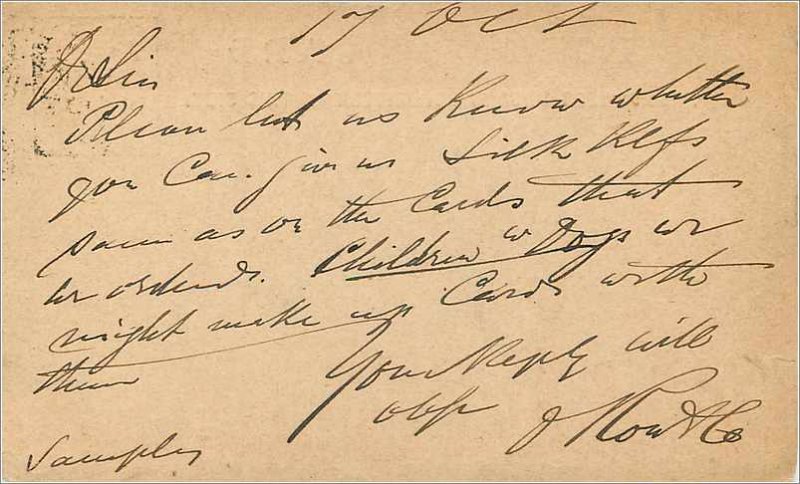 17 Oct
Dr Sir
Please let us know whether
you can give us Silk Hkfs
same as on the Cards that
we ordered. Children w Dogs we
might make up Cards with
them
Your Reply will
oblge
Samples